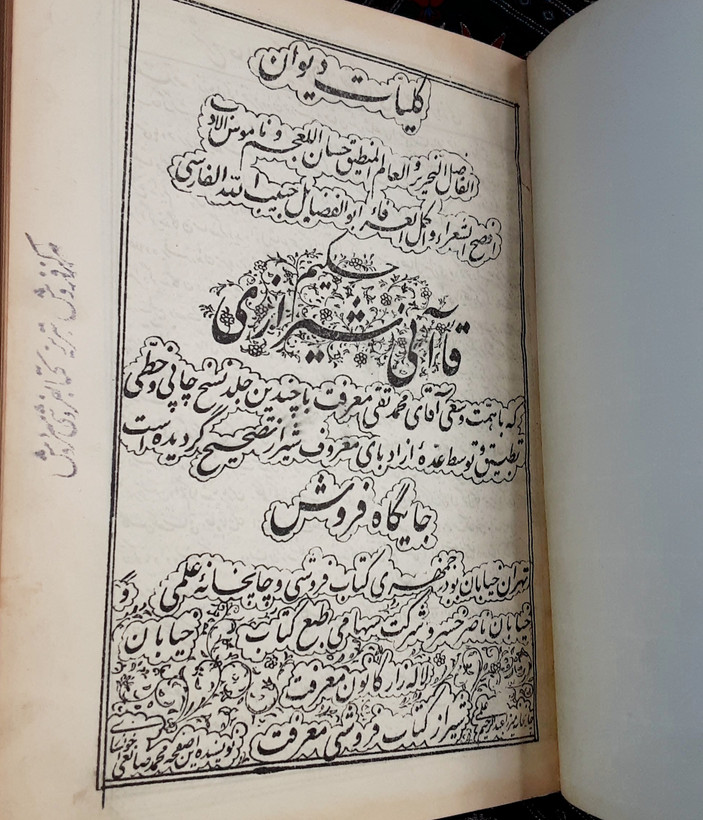 کلیات دیوان
الفاضل النحریر و العالم المنطیق حسان العجم و ناموس الادب
افصح الشعراء و اکمل العرفاء ابوالفضایل حبیب الله الفارسی
حکیم
قاآنی شیرازی
که با همت و سعی آقای محمد تقی معرفت با چندین جلد نسخ چاپی و خطی
تطبیق و توسط عدهٔ از ادبای معروف شیراز تصحیح گردیده است
جایگاه فروش
تهران خیابان بوذرجمهری کتاب فروشی و چاپخانهٔ علمی
خیابان ناصر خسرو شرکت سهامی طبع کتاب خیابان
لاله زار کانون معرفت
شیراز کتاب فروشی معرفت
نویسنده این صفحه محمد صانعی